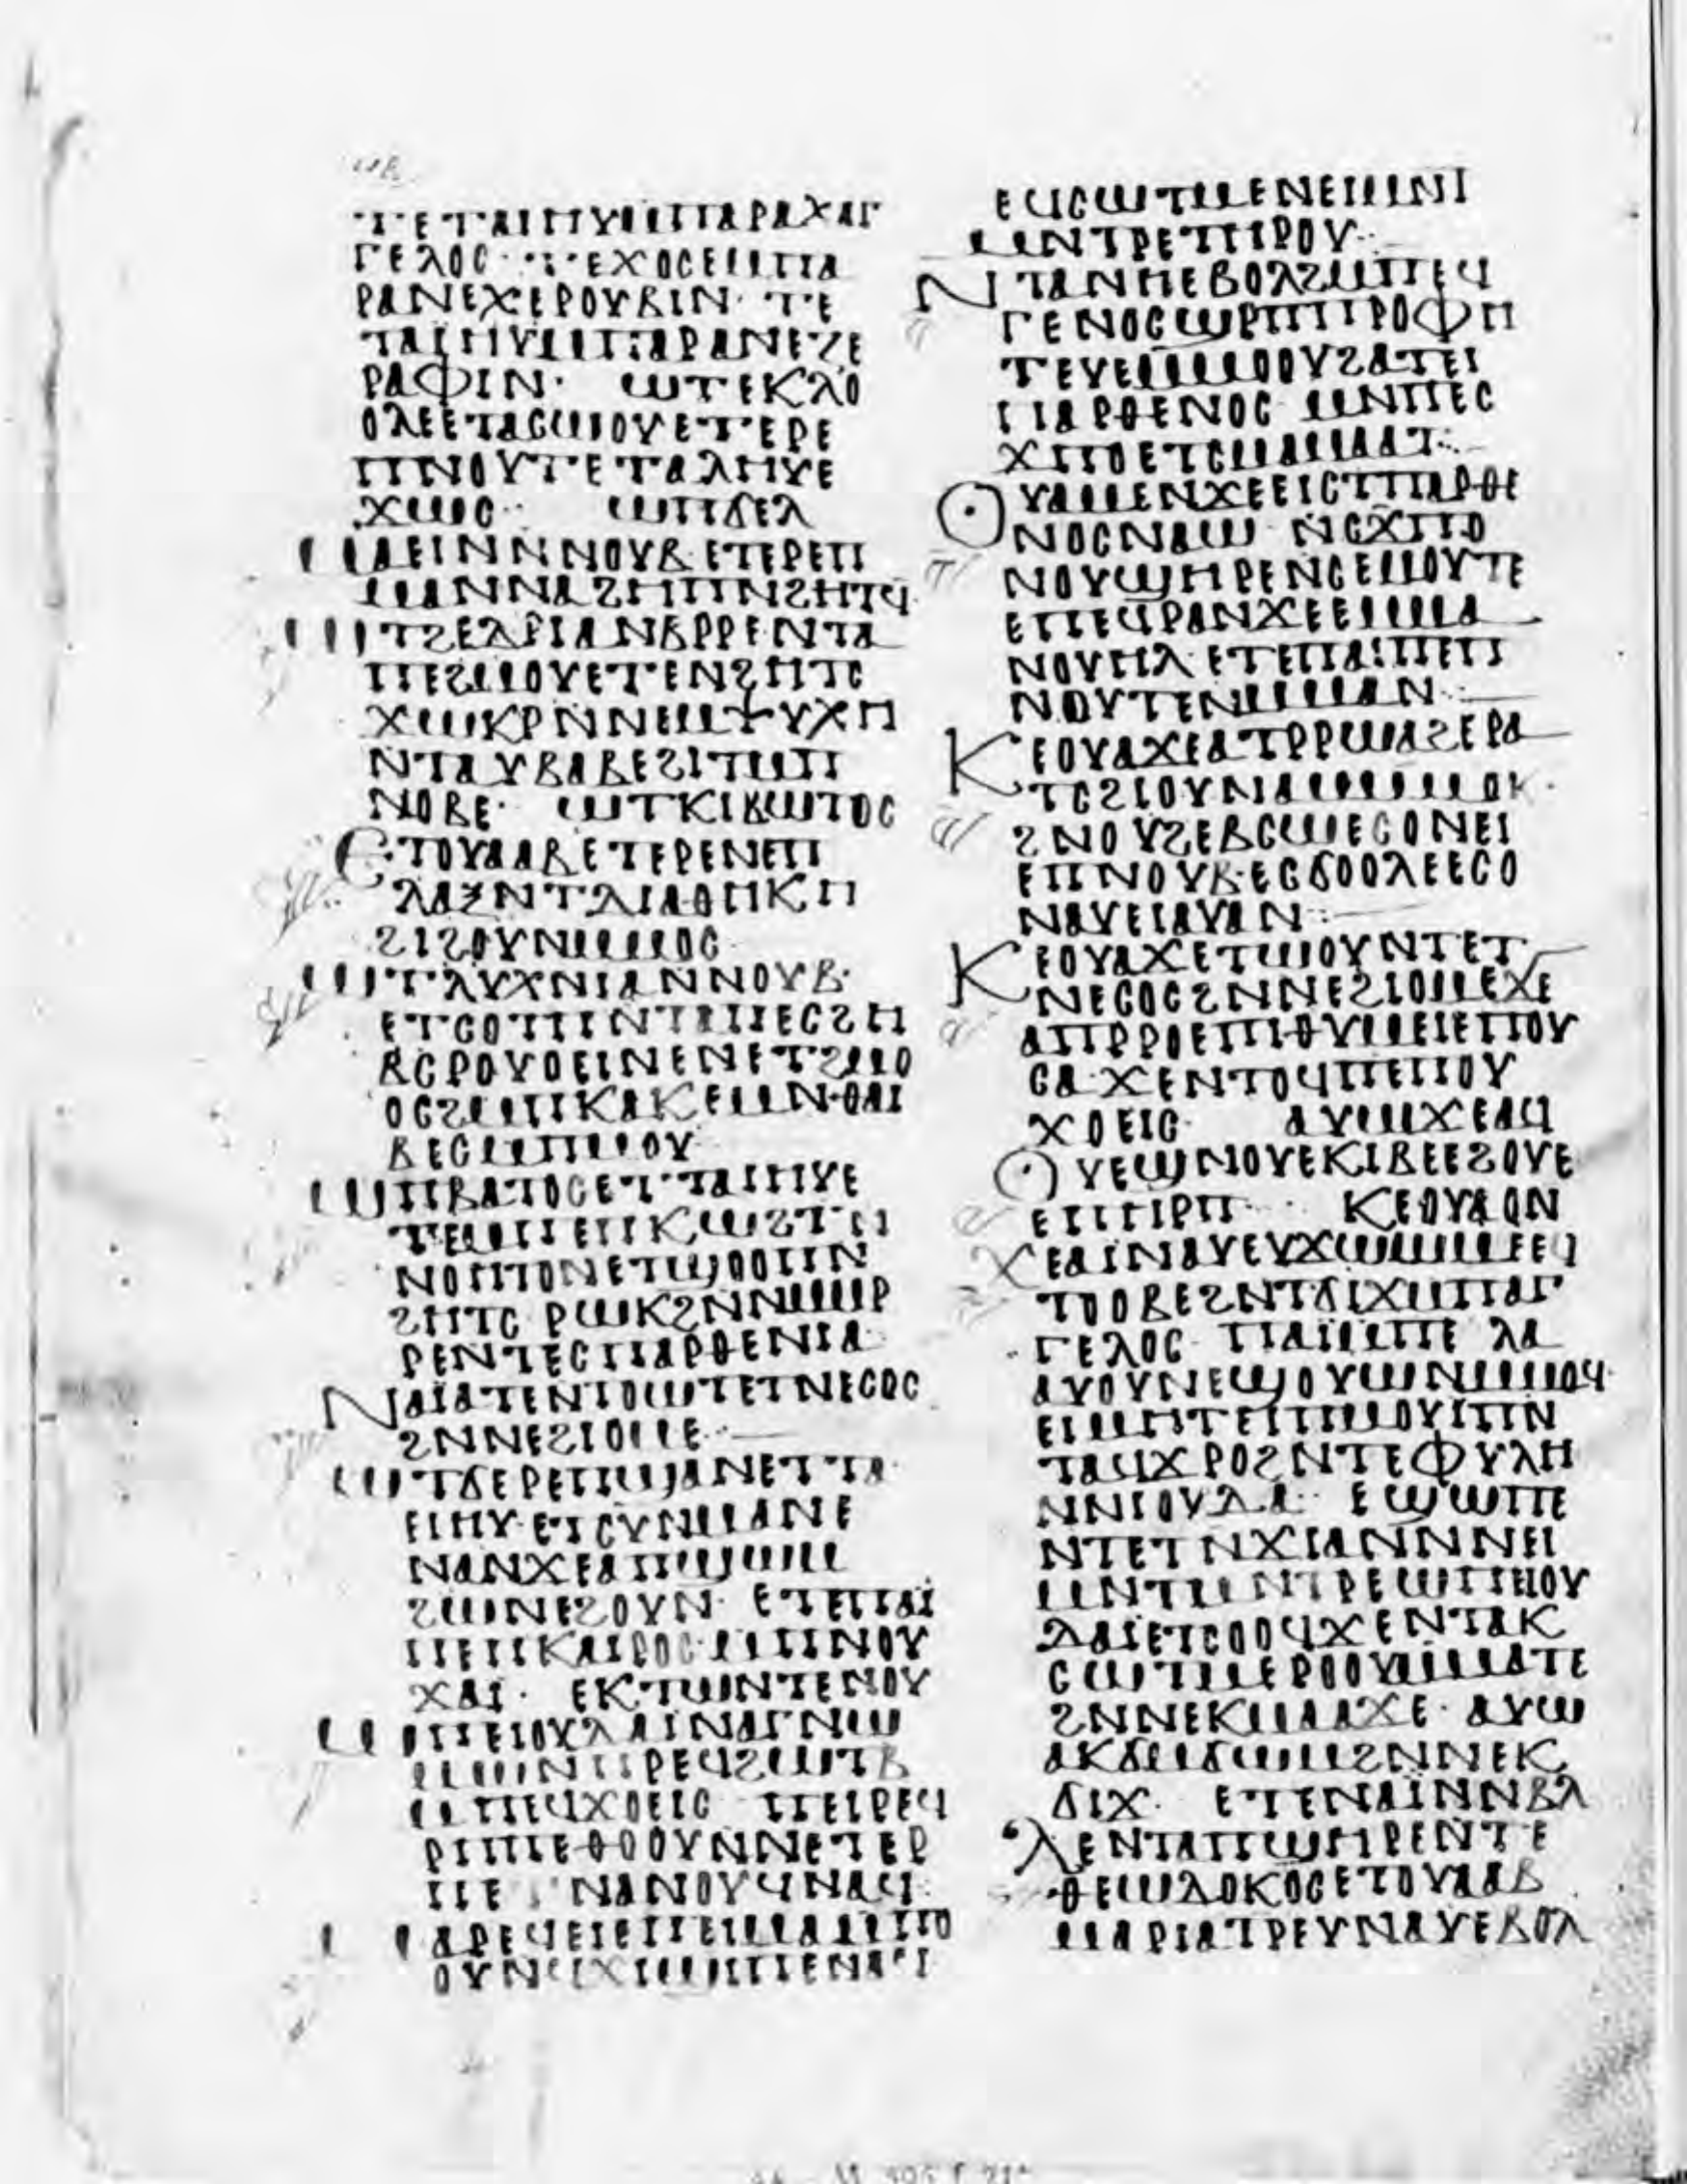 ⲧⲉⲧⲁⲓⲏⲩⲙⲡⲁⲣⲁⲭⲁⲅ
ⲅⲉⲗⲟⲥ· ⲧⲉϫⲟⲥⲉⲙⲡⲁ
ⲣⲁⲛⲉⲭⲉⲣⲟⲩⲃⲓⲛ· ⲧⲉ
ⲧⲁⲓⲏⲩⲙⲡⲁⲣⲁⲛⲉⲥⲉ
ⲣⲁⲫⲓⲛ· ⲱⲧⲉⲕⲗⲟ
ⲟⲗⲉⲉⲧⲁⲥⲱⲟⲩⲉⲧⲉⲣⲉ
ⲡⲛⲟⲩⲧⲉⲧⲁⲗⲏⲩⲉ
ϫⲱⲥ· ⲱⲡϭⲉⲗ
ⲙⲁⲉⲓⲛⲛⲛⲟⲩⲃ·ⲉⲧⲉⲣⲉⲡ
ⲙⲁⲛⲛⲁϩⲏⲡⲛϩⲏⲧϥ·
ⲱⲧϩⲉⲗⲣⲓⲁⲛⲃⲣⲣⲉⲛⲧⲁ
ⲡⲉϩⲙⲟⲩⲉⲧⲉⲛϩⲏⲧⲥ
ϫⲱⲕⲣⲛⲛⲉⲙⲯⲩⲭⲏ
ⲛⲧⲁⲩⲃⲁⲃⲉϩⲓⲧⲙⲡ
ⲛⲟⲃⲉ· ⲱⲧⲕⲓⲃⲱⲧⲟⲥ
ⲉⲧⲟⲩⲁⲁⲃⲉⲧⲉⲣⲉⲛⲉⲡ
ⲗⲁⲝⲛⲧⲇⲓⲁⲑⲏⲕⲏ
ϩⲓϩⲟⲩⲛⲙⲙⲟⲥ
ⲱⲧⲗⲩⲭⲛⲓⲁⲛⲛⲟⲩⲃ·
ⲉⲧⲥⲟⲧⲡⲛⲧⲁⲡⲉⲥϩⲏ
ⲃⲥⲣⲟⲩⲟⲉⲓⲛⲉⲛⲉⲧϩⲙⲟ
ⲟⲥϩⲙⲡⲕⲁⲕⲉⲙⲛ·ⲑⲁⲓ
ⲃⲉⲥⲙⲡⲙⲟⲩ
ⲱⲡⲃⲁⲧⲟⲥⲉⲧⲧⲁⲓⲏⲩⲉ
ⲧⲉⲙⲡⲉⲡⲕⲱϩⲧⲏ
ⲛⲟⲏⲧⲟⲛⲉⲧϣⲟⲟⲡⲛ
ϩⲏⲧⲥ ⲣⲱⲕϩⲛⲛⲙⲙⲣ
ⲣⲉⲛⲧⲉⲥⲡⲁⲣⲑⲉⲛⲓⲁ·
ⲛⲁⲓⲁⲧⲉⲛⲧⲟⲱⲧⲉⲧⲛⲉⲥⲟⲥ
ϩⲛⲛⲉϩⲓⲟⲙⲉ·
ⲱⲧϭⲉⲣⲉⲡϣⲁⲛⲉⲧⲧⲁ·
ⲉⲓⲏⲩ·ⲉⲧⲥⲩⲙⲙⲁⲛⲉ
ⲛⲁⲛϫⲉⲁⲡϣⲱⲙ
ϩⲱⲛⲉϩⲟⲩⲛ· ⲉⲧⲉⲡⲁⲓ
ⲡⲉⲡⲕⲁⲓⲣⲟⲥ·ⲙⲡⲛⲟⲩ
ϫⲁⲓ· ⲉⲕⲧⲱⲛⲧⲉⲛⲟⲩ
ⲱⲡⲉⲓⲟⲩⲇⲁⲓⲛⲁⲅⲛⲱ
ⲙⲱⲛⲡⲣⲉϥϩⲱⲧⲃ
ⲙⲡⲉϥϫⲟⲉⲓⲥ ⲡⲉⲓⲣⲉϥ
ⲣⲡⲡⲉⲑⲟⲟⲩⲛⲛⲉⲧⲉⲣ
ⲡⲉ ⲛⲁⲛⲟⲩϥⲛⲁϥ·
ⲙⲁⲣⲉϥⲉⲓⲉⲡⲉⲓⲙⲁⲙⲡⲟ
ⲉϥⲥⲱⲧⲙⲉⲛⲉⲓⲙⲛⲧ
ⲙⲛⲧⲣⲉⲧⲏⲣⲟⲩ·
ⲛⲧⲁⲛⲏⲉⲃⲟⲗϩⲙⲡⲉϥ
ⲅⲉⲛⲟⲥϣⲣⲡⲡⲣⲟⲫⲏ
ⲧⲉⲩⲉⲙⲙⲟⲟⲩϩⲁⲧⲉⲓ
ⲡⲁⲣⲑⲉⲛⲟⲥ ⲙⲛⲡⲉⲥ
ϫⲡⲟⲉⲧⲥⲙⲁⲙⲁⲁⲧ·
ⲟⲩⲁⲙⲉⲛϫⲉⲉⲓⲥⲧⲡⲁⲣⲑⲉ
ⲛⲟⲥⲛⲁⲱ ⲛⲥϫⲡⲟ
ⲛⲟⲩϣⲏⲣⲉⲛⲥⲉⲙⲟⲩⲧⲉ
ⲉⲡⲉϥⲣⲁⲛϫⲉⲉⲙⲙⲁ
ⲛⲟⲩⲏⲗ·ⲉⲧⲉⲡⲁⲓⲡⲉⲡ
ⲛⲟⲩⲧⲉⲛⲙⲙⲁⲛ·
ⲕⲉⲟⲩⲁϫⲉⲁⲧⲣⲣⲱⲁϩⲉⲣⲁ
ⲧⲥϩⲓⲟⲩⲛⲁⲙⲙⲙⲟⲕ·
ϩⲛⲟⲩϩⲉⲃⲥⲱⲉⲥⲟⲛⲉⲓ
ⲉⲡⲛⲟⲩⲃ·ⲉⲥϭⲟⲟⲗⲉⲉⲥⲟ
ⲛⲁⲩⲉⲓⲁⲩⲁⲛ·
ⲕⲉⲟⲩⲁϫⲉⲧⲱⲟⲩⲛⲧⲉⲧ
ⲛⲉⲥⲟⲥϩⲛⲛⲉϩⲓⲟⲙⲉϫⲉ
ⲁⲡⲣⲣⲟⲉⲡⲓⲑⲩⲙⲉⲓⲉⲡⲟⲩ
ⲥⲁ·ϫⲉⲛⲧⲟϥⲡⲉⲡⲟⲩ
ϫⲟⲉⲓⲥ· ⲁⲩⲱϫⲉⲁϥ
ⲟⲩⲉϣⲛⲟⲩⲉⲕⲓⲃⲉⲉϩⲟⲩⲉ
ⲉⲡⲏⲣⲡ· ⲕⲉⲟⲩⲁⲟⲛ
ϫⲉⲁⲓⲛⲁⲩⲉⲩϫⲱⲱⲙⲉⲉϥ
ⲧⲟⲟⲃⲉϩⲛⲧϭⲓϫⲙⲡⲁⲅ
ⲅⲉⲗⲟⲥ· ⲡⲁⲓⲙⲡⲉ ⲗⲁ
ⲁⲩⲟⲩⲛⲉϣⲟⲩⲱⲛⲙⲙⲟϥ·
ⲉⲓⲙⲏⲧⲉⲓⲡⲙⲟⲩⲓⲡⲛ
ⲧⲁϥϫⲣⲟϩⲛⲧⲉⲫⲩⲗⲏ
ⲛⲛⲓⲟⲩⲇⲁ· ⲉϣⲱⲡⲉ
ⲛⲧⲉⲧⲛϫⲓⲁⲛⲛⲛⲉⲓ
ⲙⲛⲧⲙⲛⲧⲣⲉⲱⲡⲓⲟⲩ
ⲇⲁⲓⲉⲧⲥⲟⲟϥϫⲉⲛⲧⲁⲕ
ⲥⲱⲧⲙⲉⲣⲟⲟⲩⲙⲙⲁⲧⲉ
ϩⲛⲛⲉⲕⲙⲁⲁϫⲉ· ⲁⲩⲱ
ⲁⲕϭⲙϭⲱⲙϩⲛⲛⲉⲕ
ϭⲓϫ· ⲉⲧⲉⲛⲁⲓⲛⲛⲃⲁ
ⲗⲉⲛⲧⲁⲡϣⲏⲣⲉⲛⲧⲉ
ⲑⲉⲱⲇⲟⲕⲟⲥⲉⲧⲟⲩⲁⲁⲃ
ⲙⲁⲣⲓⲁⲧⲣⲉⲩⲛⲁⲩⲉⲃⲟⲗ